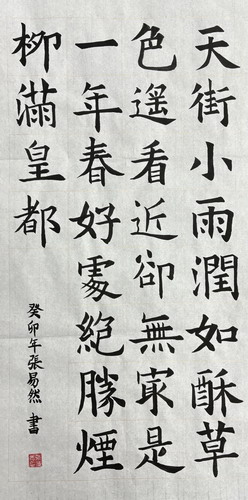 天街小雨潤如酥草
色遥看近卻無㝡是
一年春好處絕勝煙
柳滿皇都
癸卯年張易然書